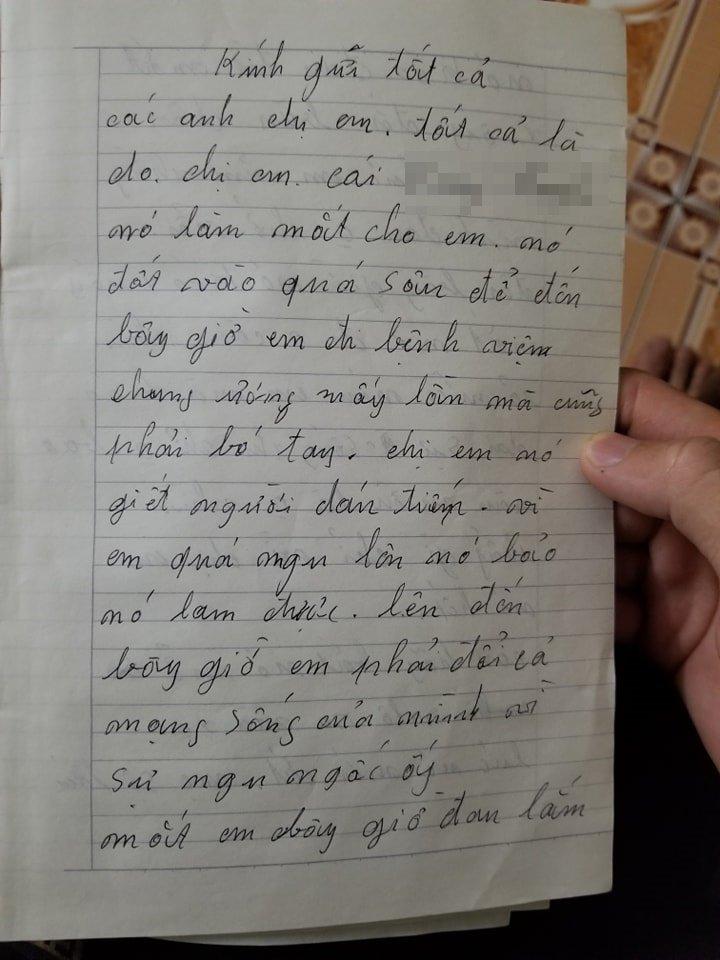 Kính gửi tất cả
các anh chị em. tất cả là
do. chị em. cái
nó làm mất cho em. nó
đốt vào quá sâu để đến
bây giờ em đi bệnh viện
chung ương mấy lần mà cũng
phải bó tay. chị em nó
giết người dán tiếp. vì
em quá ngu lên nó bảo
nó lam được. lên đến
bây giờ em phải đổi cả
mạng sống của mình vì
sự ngu ngốc ấy
mất em bây giờ đau lắm